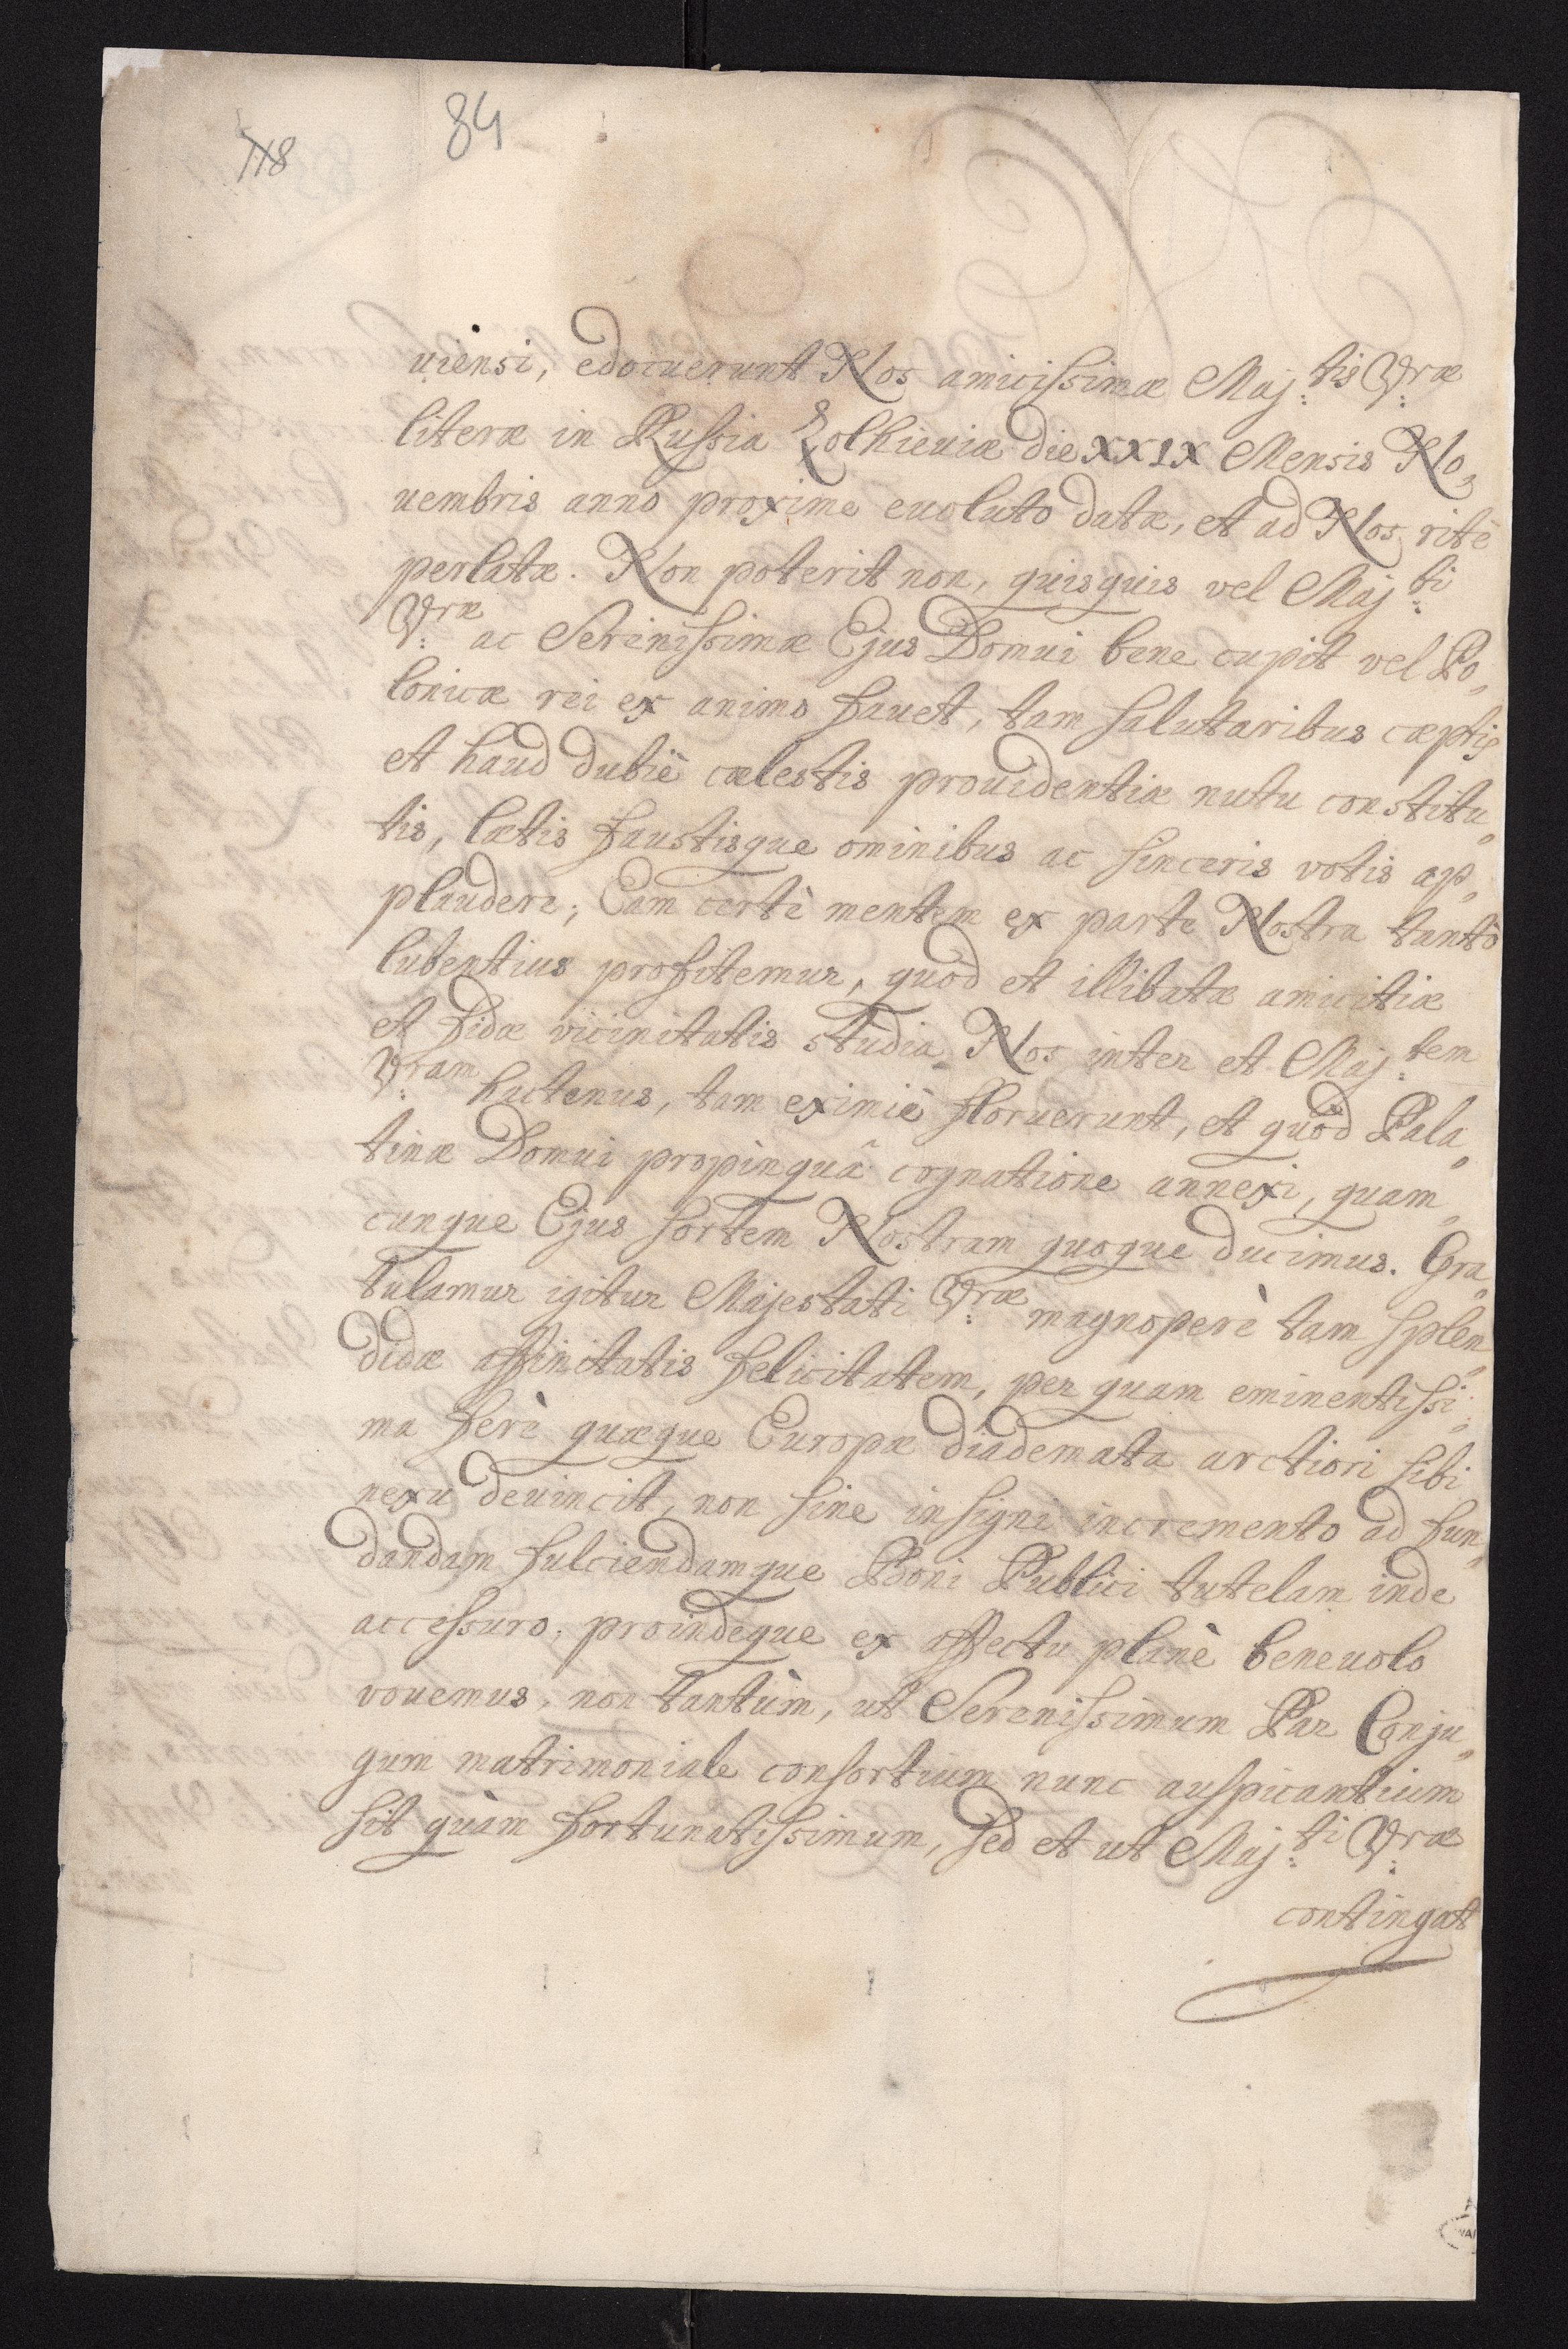 84
118
uiensi, edocuerunt Nos amicissimæ Maj:tis V:ræ
literæ in Russia Zolkieuiæ die XXIX Mensis No„
uembris anno proxime euoluto datæ, et ad Nos ritè
perlatæ. Non poterit non, quisquis vel Maj:ti
V:ræ ac Serenissimæ Ejus Domui bene cupit vel Po„
lonicæ rei ex animo fauet, tam salutaribus cæptis
et haud dubiè cælestis prouidentiæ nutu constitu„
tis, lætis faustisque ominibus ac sinceris votis ap„
plaudere; Eam certè mentem ex parte Nostra tantò
lubentius profitemur, quòd et illibatæ amicitiæ
et fidæ vicinitatis studia Nos inter et Maj:tem
V:ram hactenus, tam eximiè floruerunt, et quòd Pala„
tinæ Domui propinquâ cognatione annexi, quam„
cunque Ejus sortem Nostram quoque ducimus. Gra„
tulamur igitur Majestati V:ræ magnoperè tam splen„
didæ affinitatis felicitatem, per quam eminentissi„
ma ferè quæque Europæ diademata arctiori sibi
nexu deuincit, non sine insigni incremento ad fun„
dandam fulciendamque Boni Publici tutelam inde
accessuro, proindeque ex affectu planè beneuolo
vouemus, non tantùm, ut Serenissimum Par Conju„
gum matrimoniale consortium nunc auspicantium
sit quàm fortunatissimum, sed et ut Maj:ti V:ræ
contingat